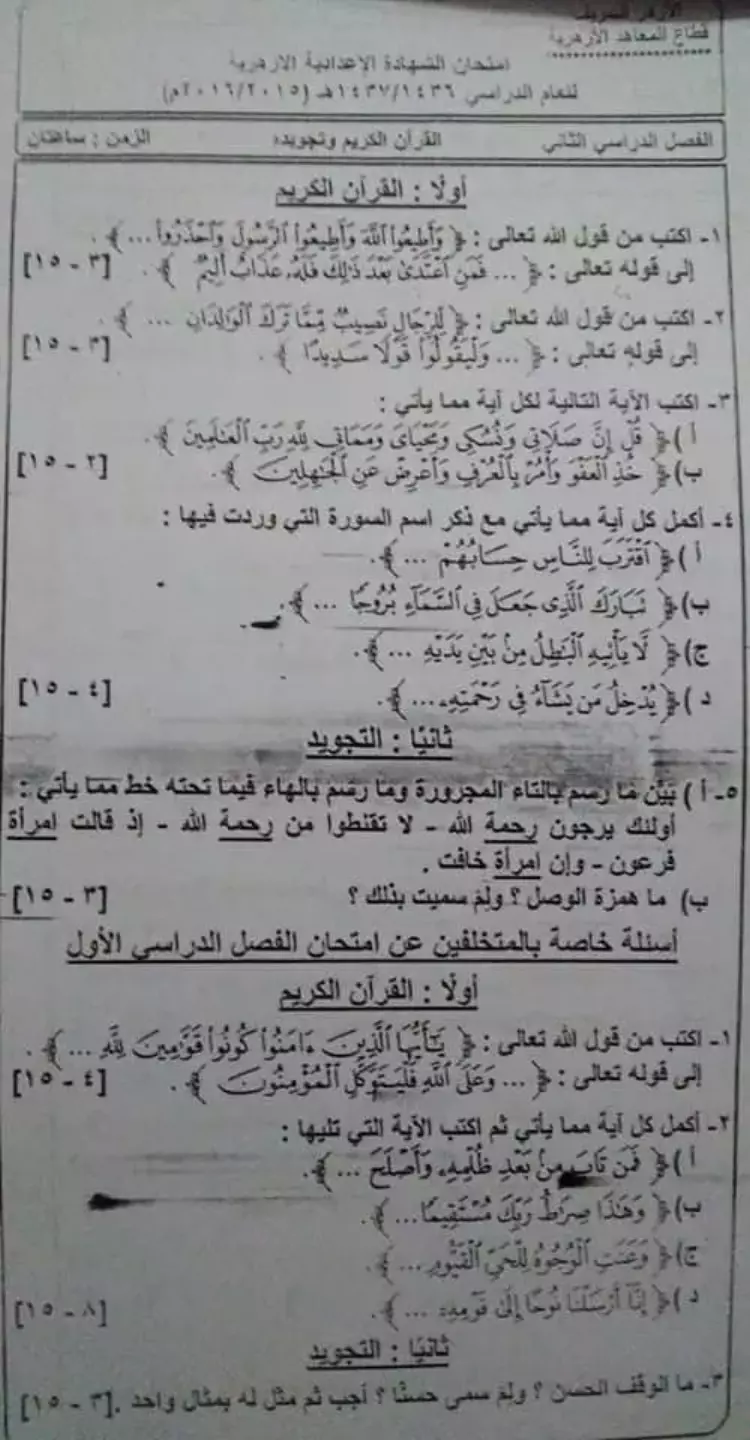 الأزهر الشريف
قطاع المعاهد الأزهرية
امتحان الشهادة الإعدادية الأزهرية
للعام الدراسي ١٤٣٦/١٤٣٧هـ (٢٠١٥/٢٠١٦م)
الفصل الدراسي الثاني القرآن الكريم وتجويده الزمن : ساعتان
أولًا : القرآن الكريم
١- اكتب من قول الله تعالى : ﴿ وَأَطِيعُوا۟ ٱللَّهَ وَأَطِيعُوا۟ ٱلرَّسُولَ وَٱحْذَرُوا۟ ... ﴾ .
إلى قوله تعالى : ﴿ ... فَمَنِ ٱعْتَدَىٰ بَعْدَ ذَٰلِكَ فَلَهُۥ عَذَابٌ أَلِيمٌ ﴾ . [٣ - ١٥]
٢- اكتب من قول الله تعالى : ﴿ لِّلرِّجَالِ نَصِيبٌ مِّمَّا تَرَكَ ٱلْوَٰلِدَانِ ... ﴾ .
إلى قوله تعالى : ﴿ ... وَلْيَقُولُوا۟ قَوْلًا سَدِيدًا ﴾ . [٣ - ١٥]
٣- اكتب الآية التالية لكل آية مما يأتي :
أ ) ﴿ قُلْ إِنَّ صَلَاتِى وَنُسُكِى وَمَحْيَاىَ وَمَمَاتِى لِلَّهِ رَبِّ ٱلْعَٰلَمِينَ ﴾ .
ب) ﴿ خُذِ ٱلْعَفْوَ وَأْمُرْ بِٱلْعُرْفِ وَأَعْرِضْ عَنِ ٱلْجَٰهِلِينَ ﴾ . [٢ - ١٥]
٤- أكمل كل آية مما يأتي مع ذكر اسم السورة التي وردت فيها :
أ ) ﴿ ٱقْتَرَبَ لِلنَّاسِ حِسَابُهُمْ ... ﴾ .
ب) ﴿ تَبَارَكَ ٱلَّذِى جَعَلَ فِى ٱلسَّمَآءِ بُرُوجًا ... ﴾ .
ج) ﴿ لَّا يَأْتِيهِ ٱلْبَٰطِلُ مِنۢ بَيْنِ يَدَيْهِ ... ﴾ .
د ) ﴿ يُدْخِلُ مَن يَشَآءُ فِى رَحْمَتِهِۦ ... ﴾ . [٤ - ١٥]
ثانيًا : التجويد
٥- أ ) بَيِّن ما رسم بالتاء المجرورة وما رسم بالهاء فيما تحته خط مما يأتي :
أولئك يرجون رحمة الله - لا تقنطوا من رحمة الله - إذ قالت امرأة
فرعون - وإن امرأة خافت .
ب) ما همزة الوصل ؟ ولِمَ سميت بذلك ؟ [٣ - ١٥]
أسئلة خاصة بالمتخلفين عن امتحان الفصل الدراسي الأول
أولًا : القرآن الكريم
١- اكتب من قول الله تعالى : ﴿ يَٰٓأَيُّهَا ٱلَّذِينَ ءَامَنُوا۟ كُونُوا۟ قَوَّٰمِينَ لِلَّهِ ... ﴾ .
إلى قوله تعالى : ﴿ ... وَعَلَى ٱللَّهِ فَلْيَتَوَكَّلِ ٱلْمُؤْمِنُونَ ﴾ . [٤ - ١٥]
٢- أكمل كل آية مما يأتي ثم اكتب الآية التي تليها :
أ ) ﴿ فَمَن تَابَ مِنۢ بَعْدِ ظُلْمِهِۦ وَأَصْلَحَ ... ﴾ .
ب) ﴿ وَهَٰذَا صِرَٰطُ رَبِّكَ مُسْتَقِيمًا ... ﴾ .
ج) ﴿ وَعَنَتِ ٱلْوُجُوهُ لِلْحَىِّ ٱلْقَيُّومِ ... ﴾ .
د ) ﴿ إِنَّآ أَرْسَلْنَا نُوحًا إِلَىٰ قَوْمِهِۦ ... ﴾ . [٨ - ١٥]
ثانيًا : التجويد
٣- ما الوقف الحسن ؟ ولِمَ سمى حسنًا ؟ أجب ثم مثل له بمثال واحد . [٣ - ١٥]